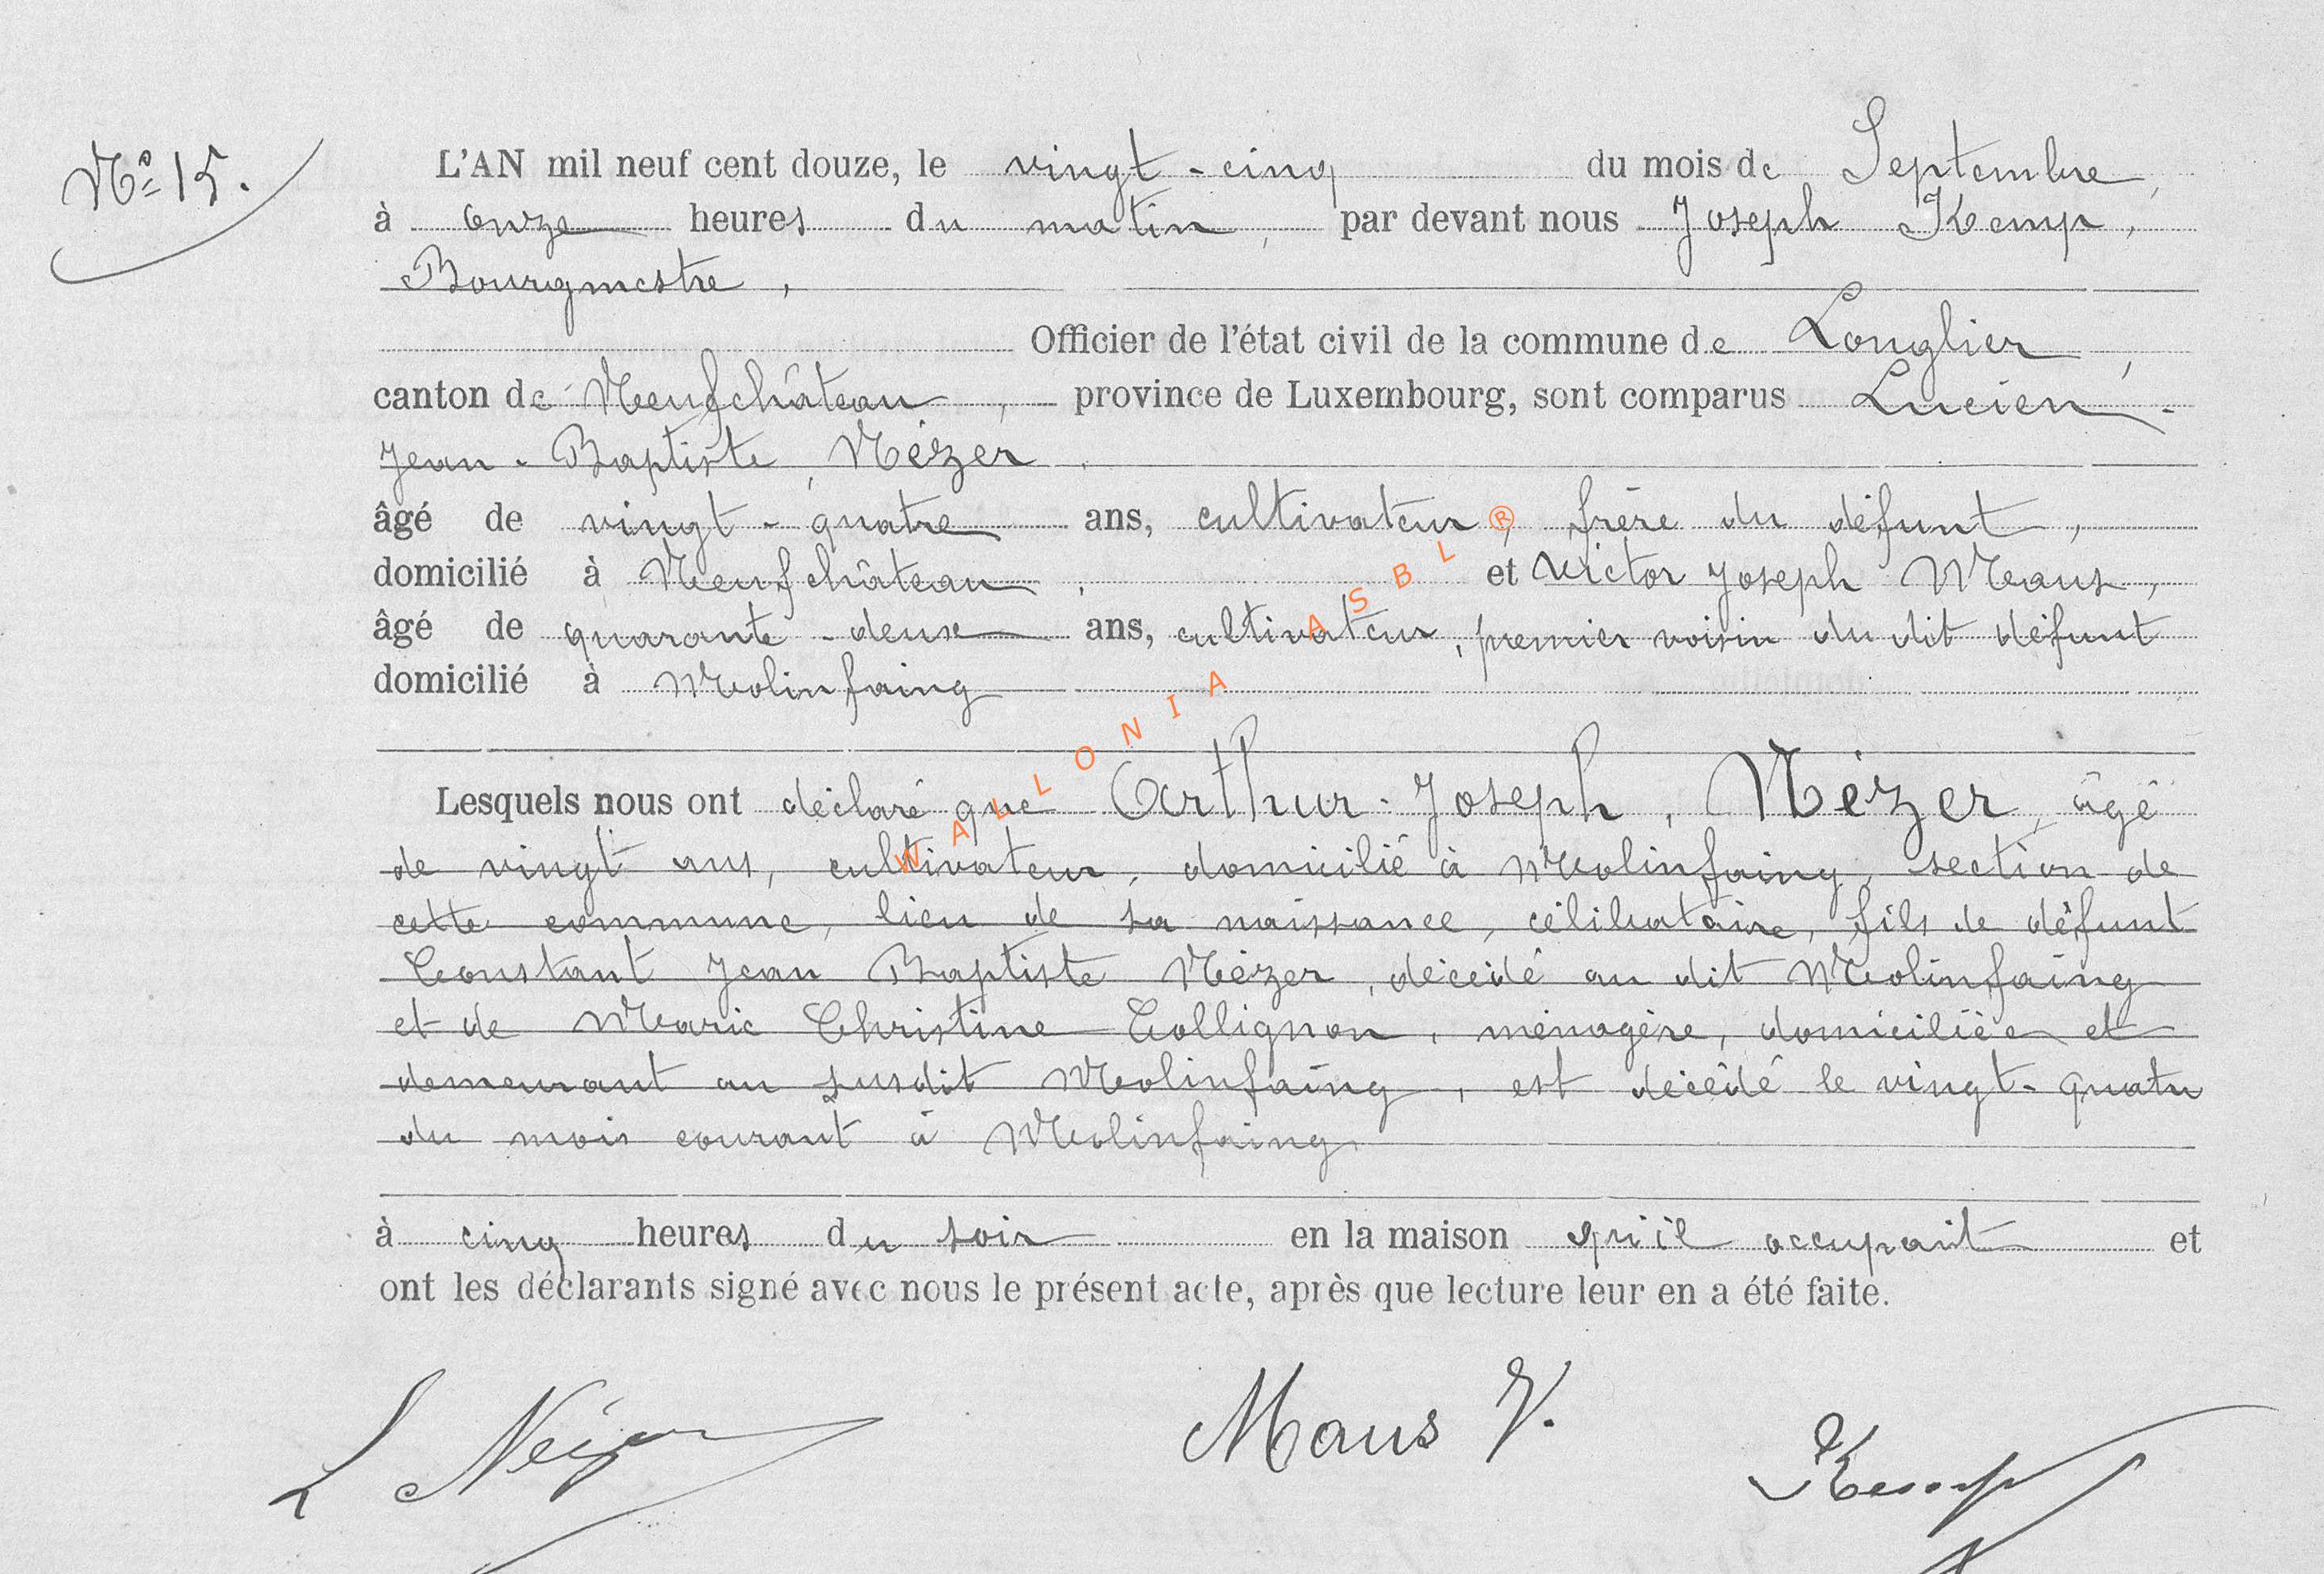 N° 15.
L'AN mil neuf cent douze, le vingt-cinq du mois de Septembre,
à onze heures du matin, par devant nous Joseph Kemp,
Bourgmestre,
Officier de l'état civil de la commune de Longlier,
canton de Neufchâteau, province de Luxembourg, sont comparus Lucien-
Jean-Baptiste, Nézer,
âgé de vingt-quatre ans, cultivateur, frère du défunt,
domicilié à Neufchâteau, et Victor Joseph Maus,
âgé de quarante-deux ans, cultivateur, premier voisin du dit défunt
domicilié à Molinfaing
Lesquels nous ont déclaré que Arthur-Joseph, Nézer, âgé
de vingt ans, cultivateur, domicilié à Molinfaing, section de
cette commune, lieu de sa naissance, célibataire, fils de défunt
Constant Jean Baptiste Nézer, décédé au dit Molinfaing
et de Marie Christine Collignon, ménagère, domiciliée et
demeurant au susdit Molinfaing, est décédé le vingt-quatre
du mois courant à Molinfaing
à cinq heures du soir en la maison qu'il occupait et
ont les déclarants signé avec nous le présent acte, après que lecture leur en a été faite.
L Nézer Maus V. Kemp
WALLONIA ASBL ®